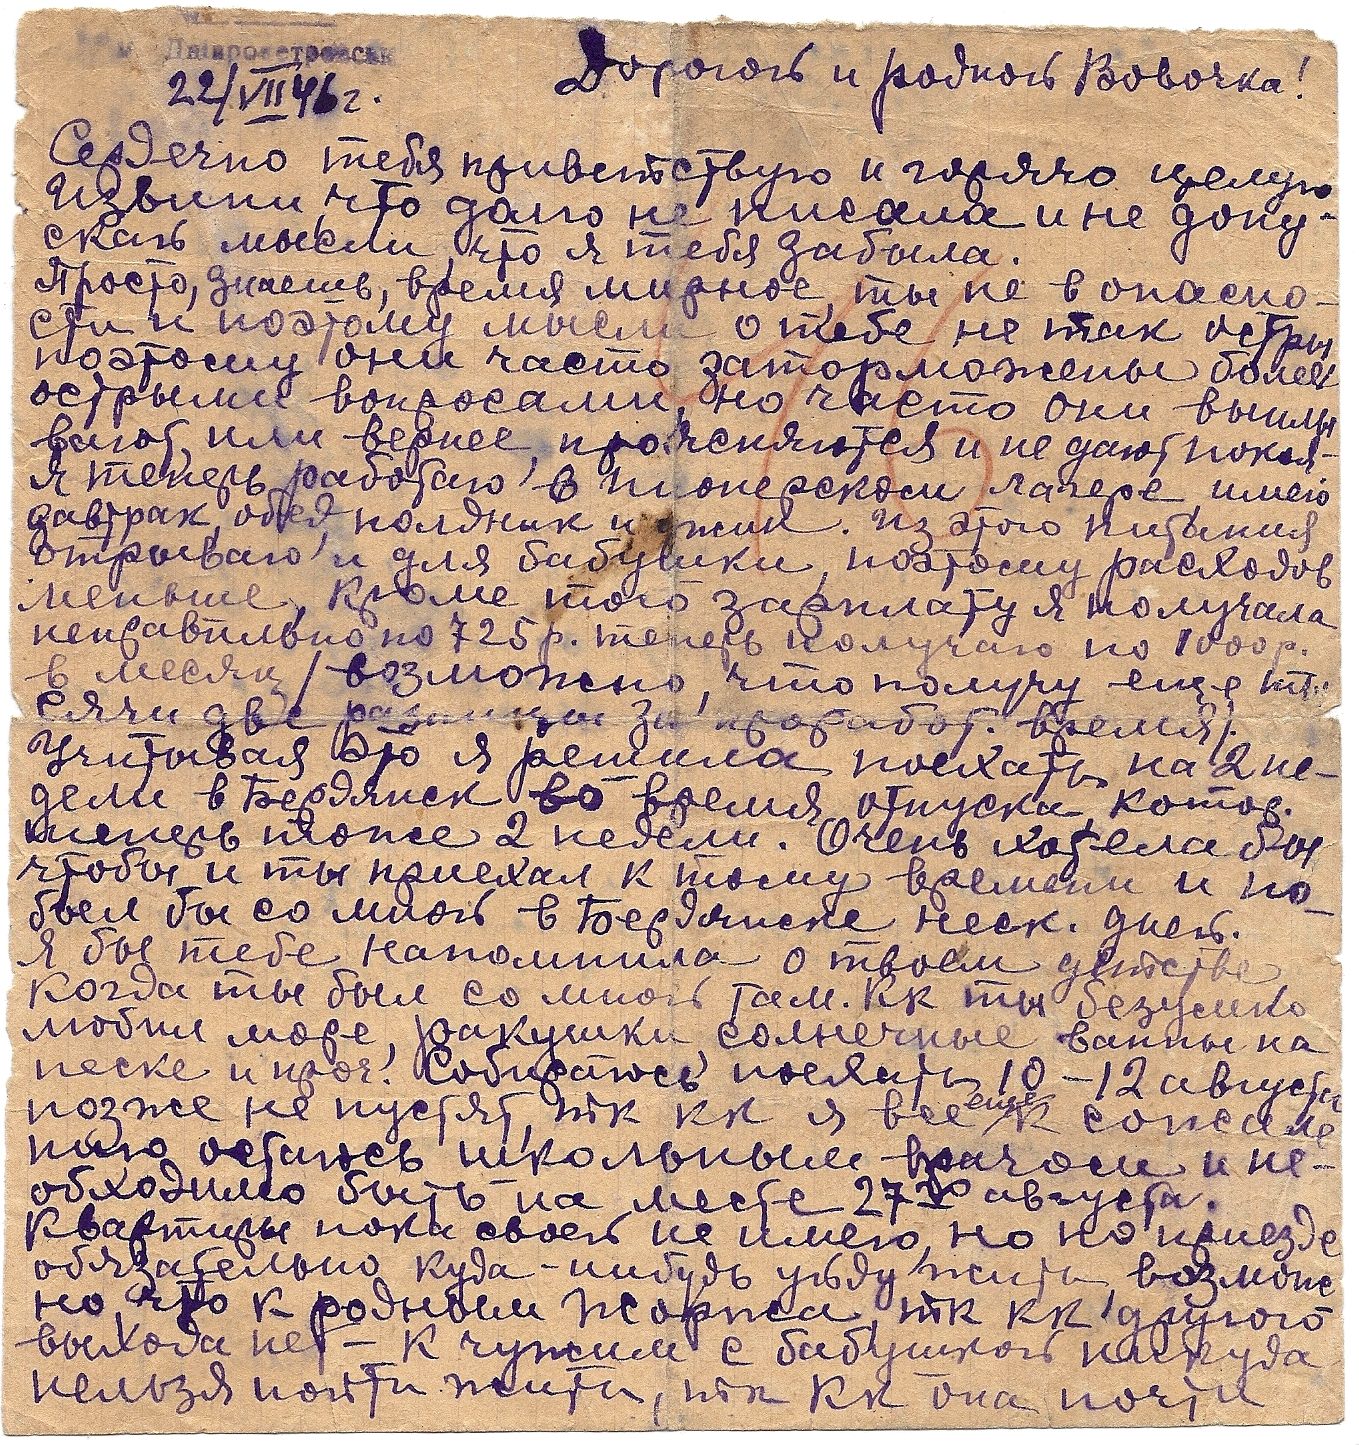 м. Дніпропетровськ
22/VII 46 г.
Дорогой и родной Вовочка!
Сердечно тебя приветствую и горячо целую
Извини, что долго не писала и не допу-
скай мысли, что я тебя забыла.
Просто, знаешь, время мирное, ты не в опасно-
сти и поэтому мысли о тебе не так остры
поэтому они часто заторможены более
острыми вопросами, но часто они выплы
вают, или вернее, проясняются и не дают покоя-
Я теперь работаю в пионерском лагере, имею
завтрак, обед, полдник и ужин. Из этого питания
отрываю и для бабушки, поэтому расходов
меньше, кроме того зарплату я получала
неправильно по 725 р. теперь получаю по 1000 р.
в месяц / возможно, что получу еще ты
сячи две разницы за проработ. время/.
Учитывая это я решила поехать на 2 не-
дели в Бердянск во время отпуска, котор.
теперь тоже 2 недели. Очень хотела бы
чтобы и ты приехал к тому времени и по-
был бы со мной в Бердянске неск. дней.
Я бы тебе напомнила о твоем детстве
когда ты был со мной там. Кк ты безумно
любил море, ракушки, солнечные ванны на
песке и проч. Собираюсь поехать 10-12 августа
позже не пустят, тк кк я все еще к сожале
нию остаюсь школьным врачом и не-
обходимо быть на месте 27го августа.
Квартиры пока своей не имею, но по приезде
обязательно куда-нибудь уйду жить, возмож
но, что к родным Жоржа, тк кк другого
выхода нет - к чужим с бабушкой никуда
нельзя пойти жить, тк кк она почти